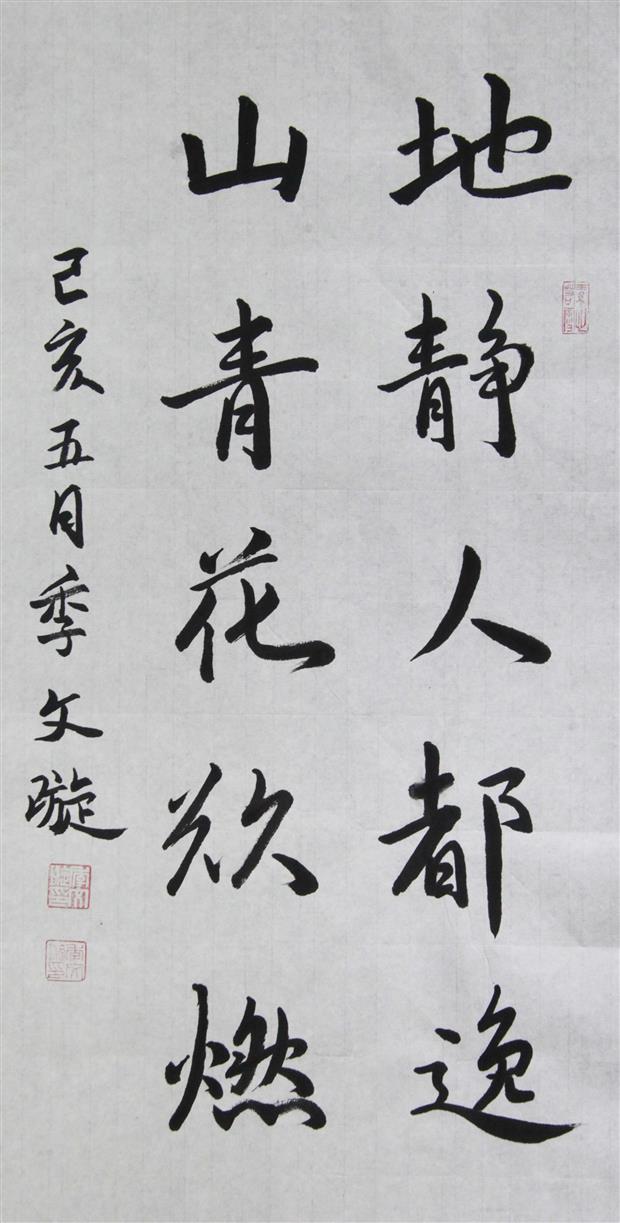 地静人都逸
山青花欲燃
己亥五月季文璇